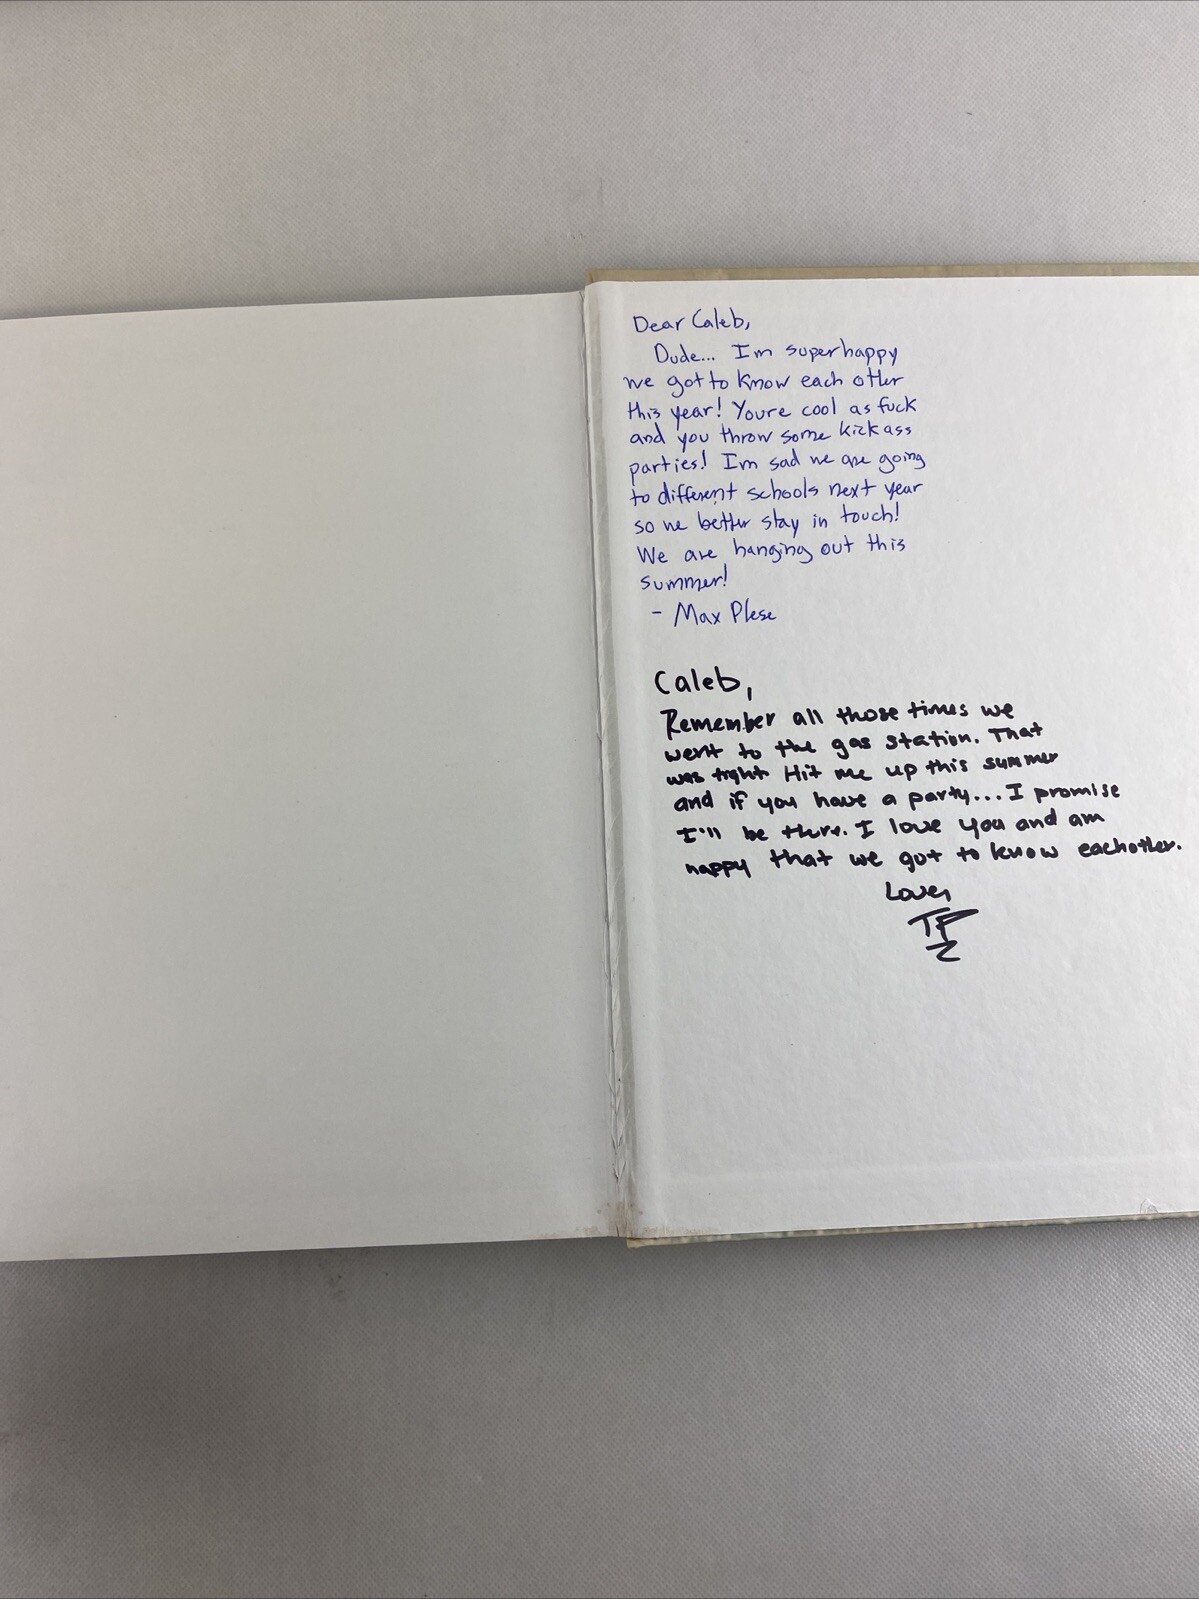 Dear Caleb,
Dude... Im super happy
we got to know each other
this year! Youre cool as fuck
and you throw some kick ass
parties! Im sad we are going
to different schools next year
so we better stay in touch!
We are hanging out this
summer!
- Max Plese
Caleb,
Remember all those times we
went to the gas station. That
was tight Hit me up this summer
and if you have a party... I promise
I'll be there. I love you and am
happy that we got to know eachother.
Love,